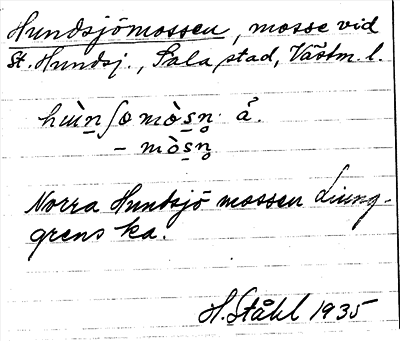 Hundsjömossen, mosse vid
St. Hundsj., Sala stad, Västm. l.
hùnʃo mòsn̥ å.
– mòsn̥
Norra Hundsjö mossen Ljung-
grens ka.
H. Ståhl 1935